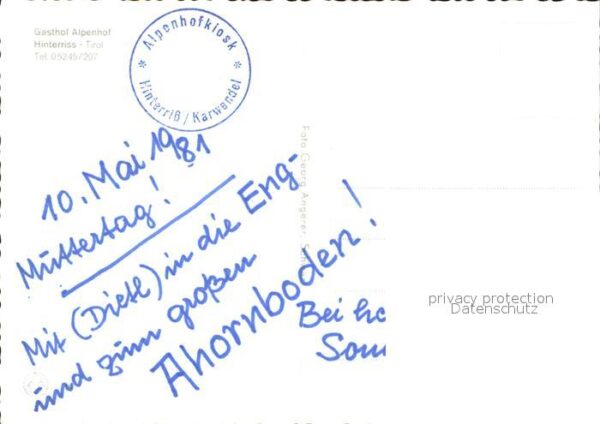 Gasthof Alpenhof
Hinterriss - Tirol
Tel. 05245/207
* Alpenhofkiosk *
Hinterriß/Karwendel
10. Mai 1981
Muttertag!
Mit (Dietl) in die Eng-
und zum großen
Ahornboden!
Bei
Foto Georg Angerer,
privacy protection
Datenschutz